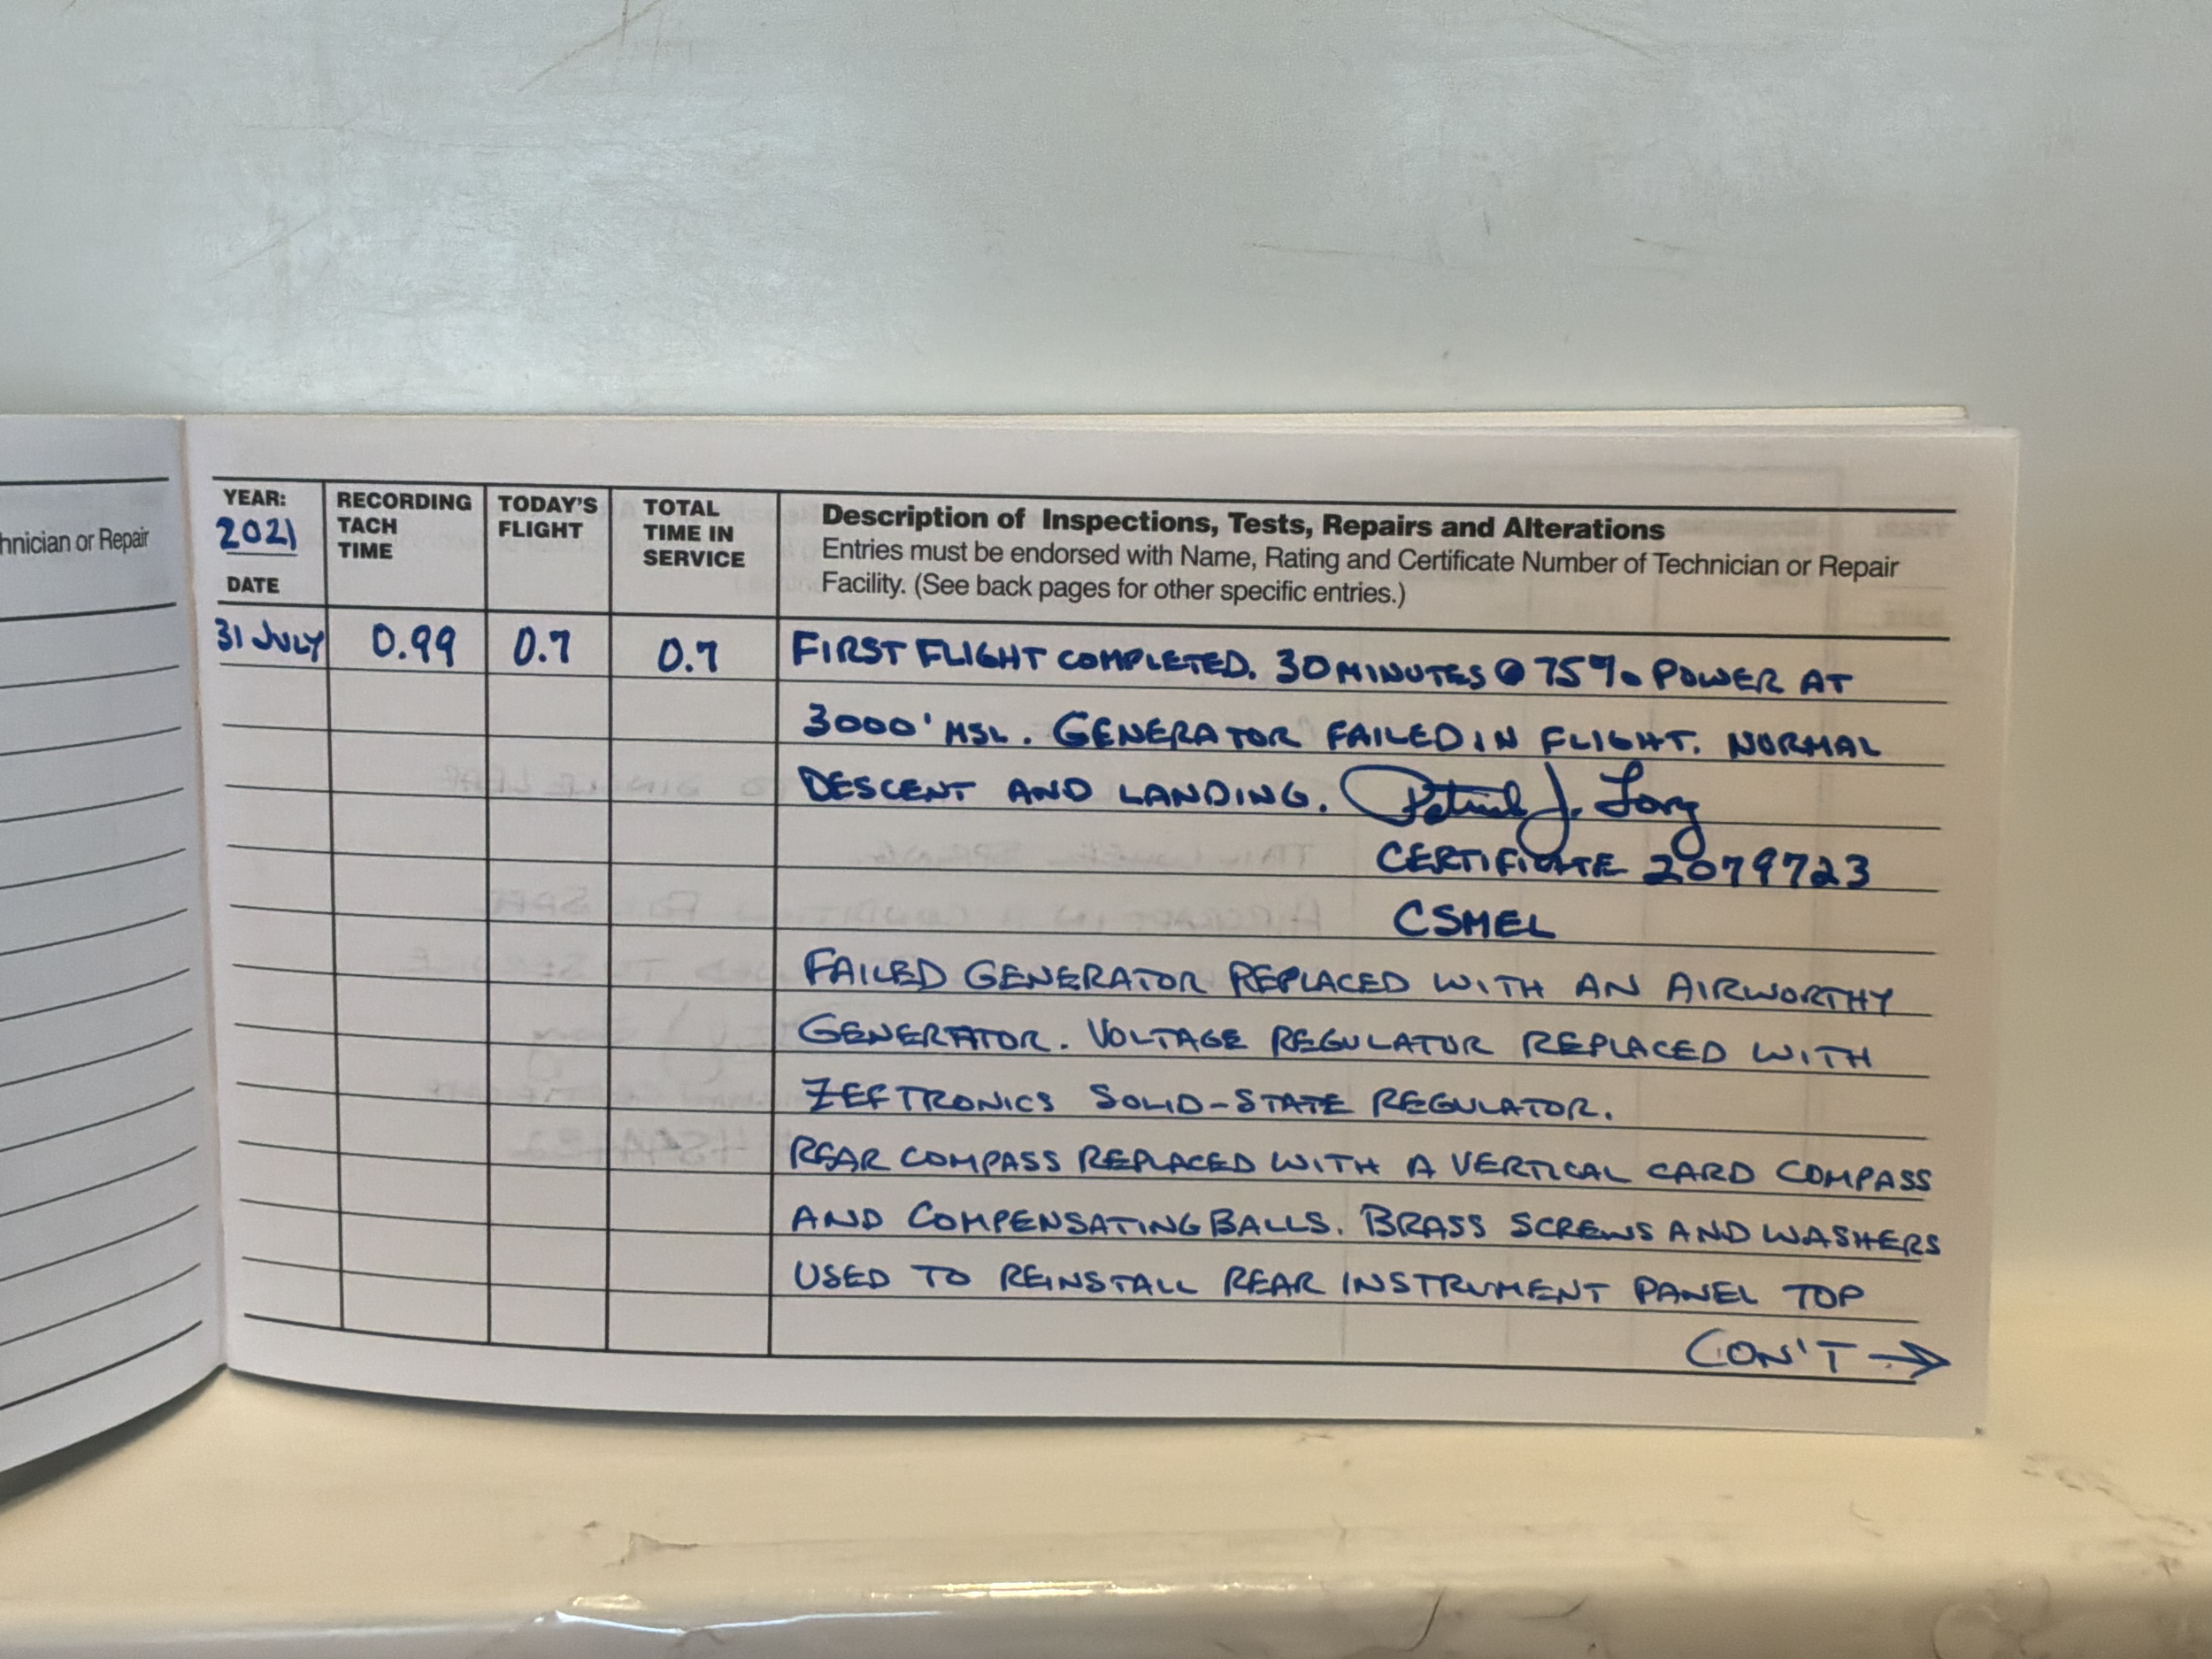 hnician or Repair
YEAR:
2021
DATE
RECORDING
TACH
TIME
TODAY'S
FLIGHT
TOTAL
TIME IN
SERVICE
Description of Inspections, Tests, Repairs and Alterations
Entries must be endorsed with Name, Rating and Certificate Number of Technician or Repair
Facility. (See back pages for other specific entries.)
31 JULY 0.99 0.7 0.7 FIRST FLIGHT COMPLETED. 30 MINUTES @ 75% POWER AT
3000' MSL. GENERATOR FAILED IN FLIGHT. NORMAL
DESCENT AND LANDING. Patrick J. Long
CERTIFICATE 2079723
CSMEL
FAILED GENERATOR REPLACED WITH AN AIRWORTHY
GENERATOR. VOLTAGE REGULATOR REPLACED WITH
ZEFTRONICS SOLID-STATE REGULATOR.
REAR COMPASS REPLACED WITH A VERTICAL CARD COMPASS
AND COMPENSATING BALLS. BRASS SCREWS AND WASHERS
USED TO REINSTALL REAR INSTRUMENT PANEL TOP
CON'T →